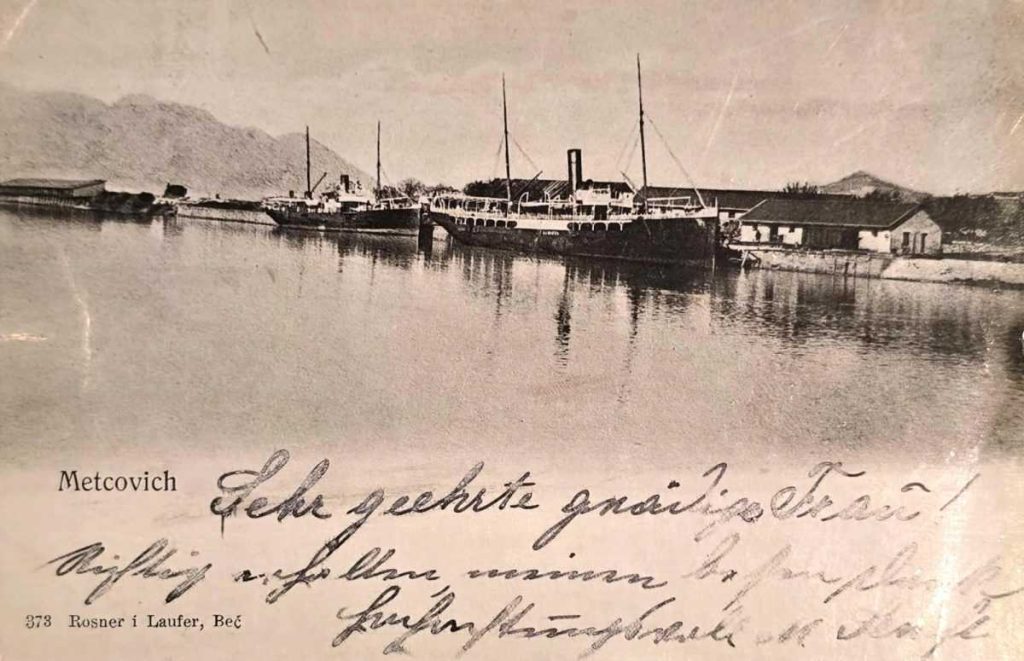 Metcovich
Sehr geehrte gnädige Frau!
Richtig erhalten, meinen besten Dank
373 Rosner i Laufer, Beč
Hochachtungsvoll M